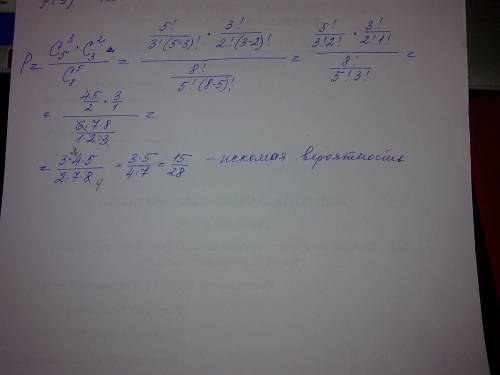 P = \frac{C_5^3 \cdot C_3^2}{C_8^5} = \frac{\frac{5!}{3!(5-3)!} \cdot \frac{3!}{2!(3-2)!}}{\frac{8!}{5!(8-5)!}} = \frac{\frac{5!}{3!2!} \cdot \frac{3!}{2!1!}}{\frac{8!}{5!3!}} =
= \frac{\frac{4 \cdot 5}{2} \cdot \frac{3}{1}}{\frac{6 \cdot 7 \cdot 8}{1 \cdot 2 \cdot 3}} =
= \frac{3 \cdot 4 \cdot 5}{2 \cdot 7 \cdot 8} = \frac{3 \cdot 5}{4 \cdot 7} = \frac{15}{28} - искомая вероятность